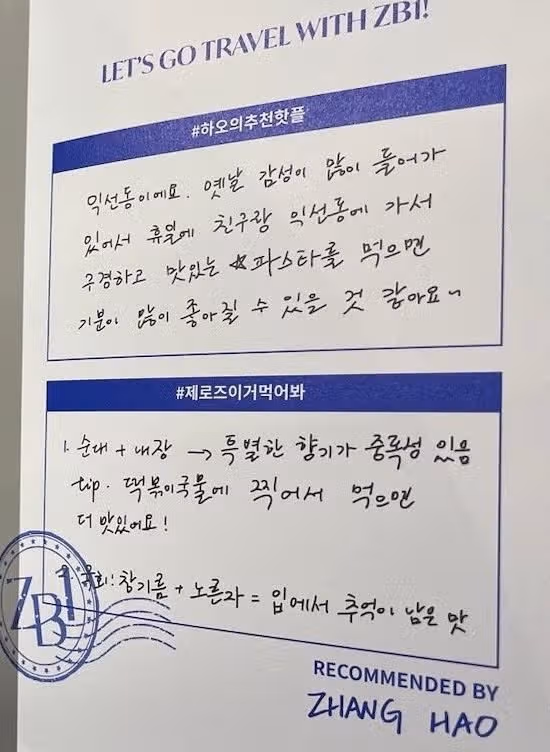 LET'S GO TRAVEL WITH ZB1!
#하오의추천핫플
익선동이에요. 옛날 감성이 많이 들어가
있어서 휴일에 친구랑 익선동에 가서
구경하고 맛있는 ☆파스타를 먹으면
기분이 많이 좋아질 수 있을 것 같아요~
#제로즈이거먹어봐
1. 순대 + 내장 → 특별한 향기가 중독성 있음
tip. 떡볶이국물에 찍어서 먹으면
더 맛있어요!
2. 육회: 참기름 + 노른자 = 입에서 추억이 남은 맛
ZB1
RECOMMENDED BY
ZHANG HAO